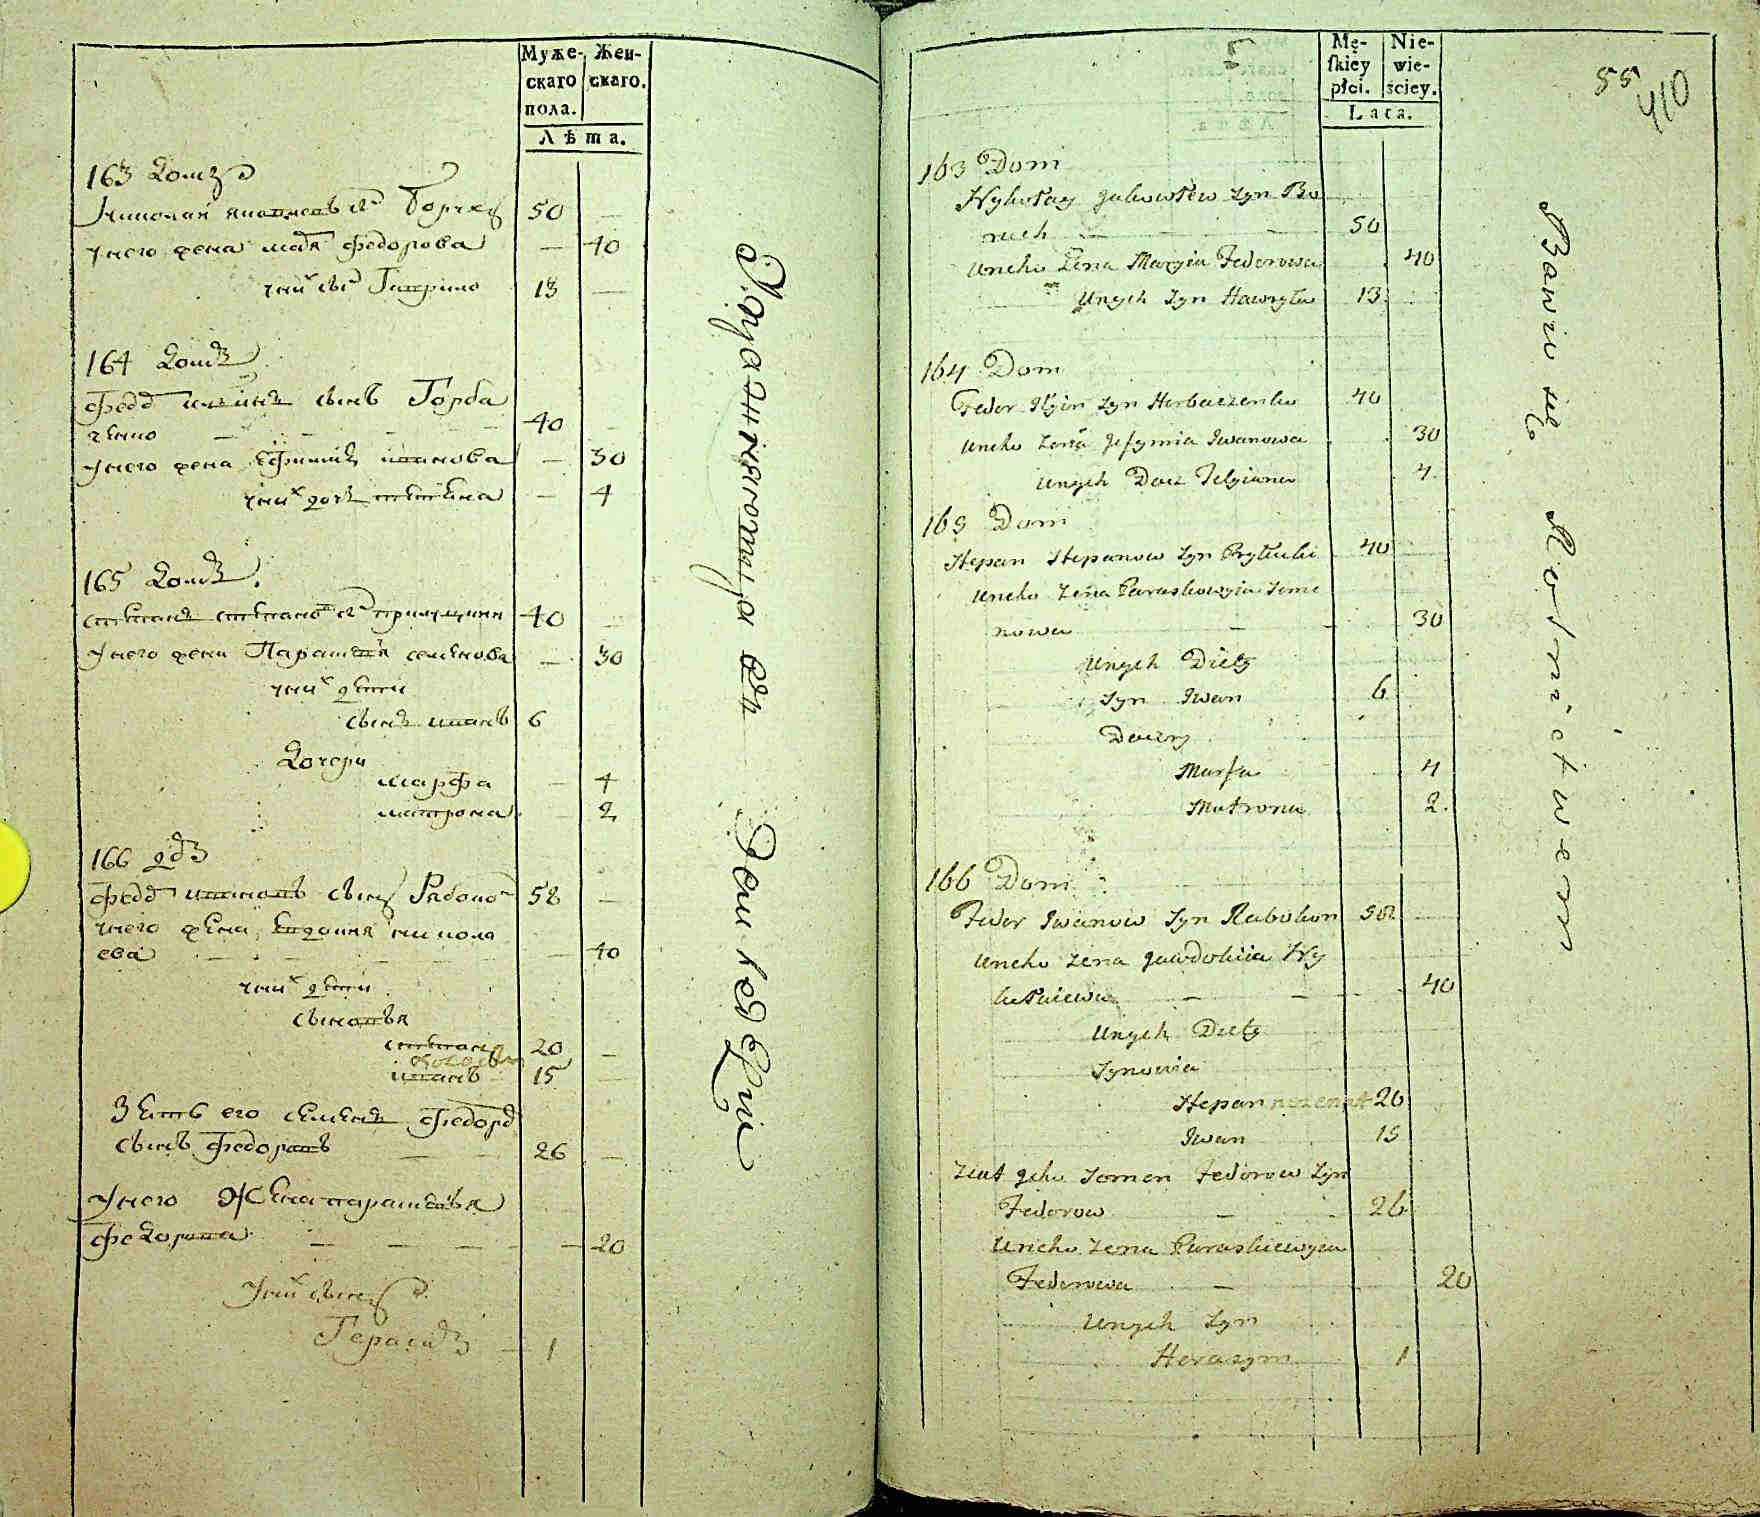 Муже-
скаго
пола.
Жен-
скаго.
Лѣта.
163 домъ
Николай Яковлевъ сынъ Борух 50 —
у него жена Марія Федорова — 40
у них сынъ Гаврило 13 —
164 домъ
Федоръ Ильинъ сынъ Горба
ченко — — — 40 —
у него жена Ефимія Иванова — 30
у них дочь Татіяна — 4
165 домъ.
Степанъ Степановъ сынъ Прилуцкій 40 —
у него жена Парасковія Семенова — 30
у них дѣти
сынъ Иванъ 6
дочери
Марфа — 4
Матрона — 2
166 дом
Федоръ Ивановъ сынъ Рабокон 58 —
у него жена Евдокия Никола
ева — — — 40
у них дѣти
сыновья
Степанъ 20 —
холостъ
Иванъ 15 —
Зять его Семенъ Федоров
сынъ Федоровъ — — 26 —
у него жена Парасковья
Федорова — — — — 20
у них сынъ
Герасим — 1
Упражняются въ Земледѣліи
Mę-
skiey
płci.
Nie-
wie-
sciey.
Lata.
55
410
163 Dom
Nykołay Jakowlew Syn Bo
ruch — — 50
Uneho Zena Maryia Fedorowa 40
Unych Syn Hawryło 13
164 Dom
Fedor Iljin Syn Horbaczenko 40
Uneho Zena Jefymia Iwanowa 30
Unych Docz Tetyiana 4
165 Dom
Stepan Stepanow Syn Pryłucki 40
Uneho Zena Paraskowyia Seme
nowa — — 30
Unych Diety
Syn Iwan 6
Doczry
Marfa 4
Matrona 2
166 Dom
Fedor Iwanow Syn Rabokon 58
Uneho Zena Jawdokiia Ny
kołaiewa — — 40
Unych Diety
Synowia
Stepan nezonat 20
Iwan 15
Ziat Jeho Semen Fedorow Syn
Fedorow — — 26
Uneho Zena Paraskiewyia
Fedorowa — 20
Unych Syn
Herasym 1
Bawio się Rolnictwem